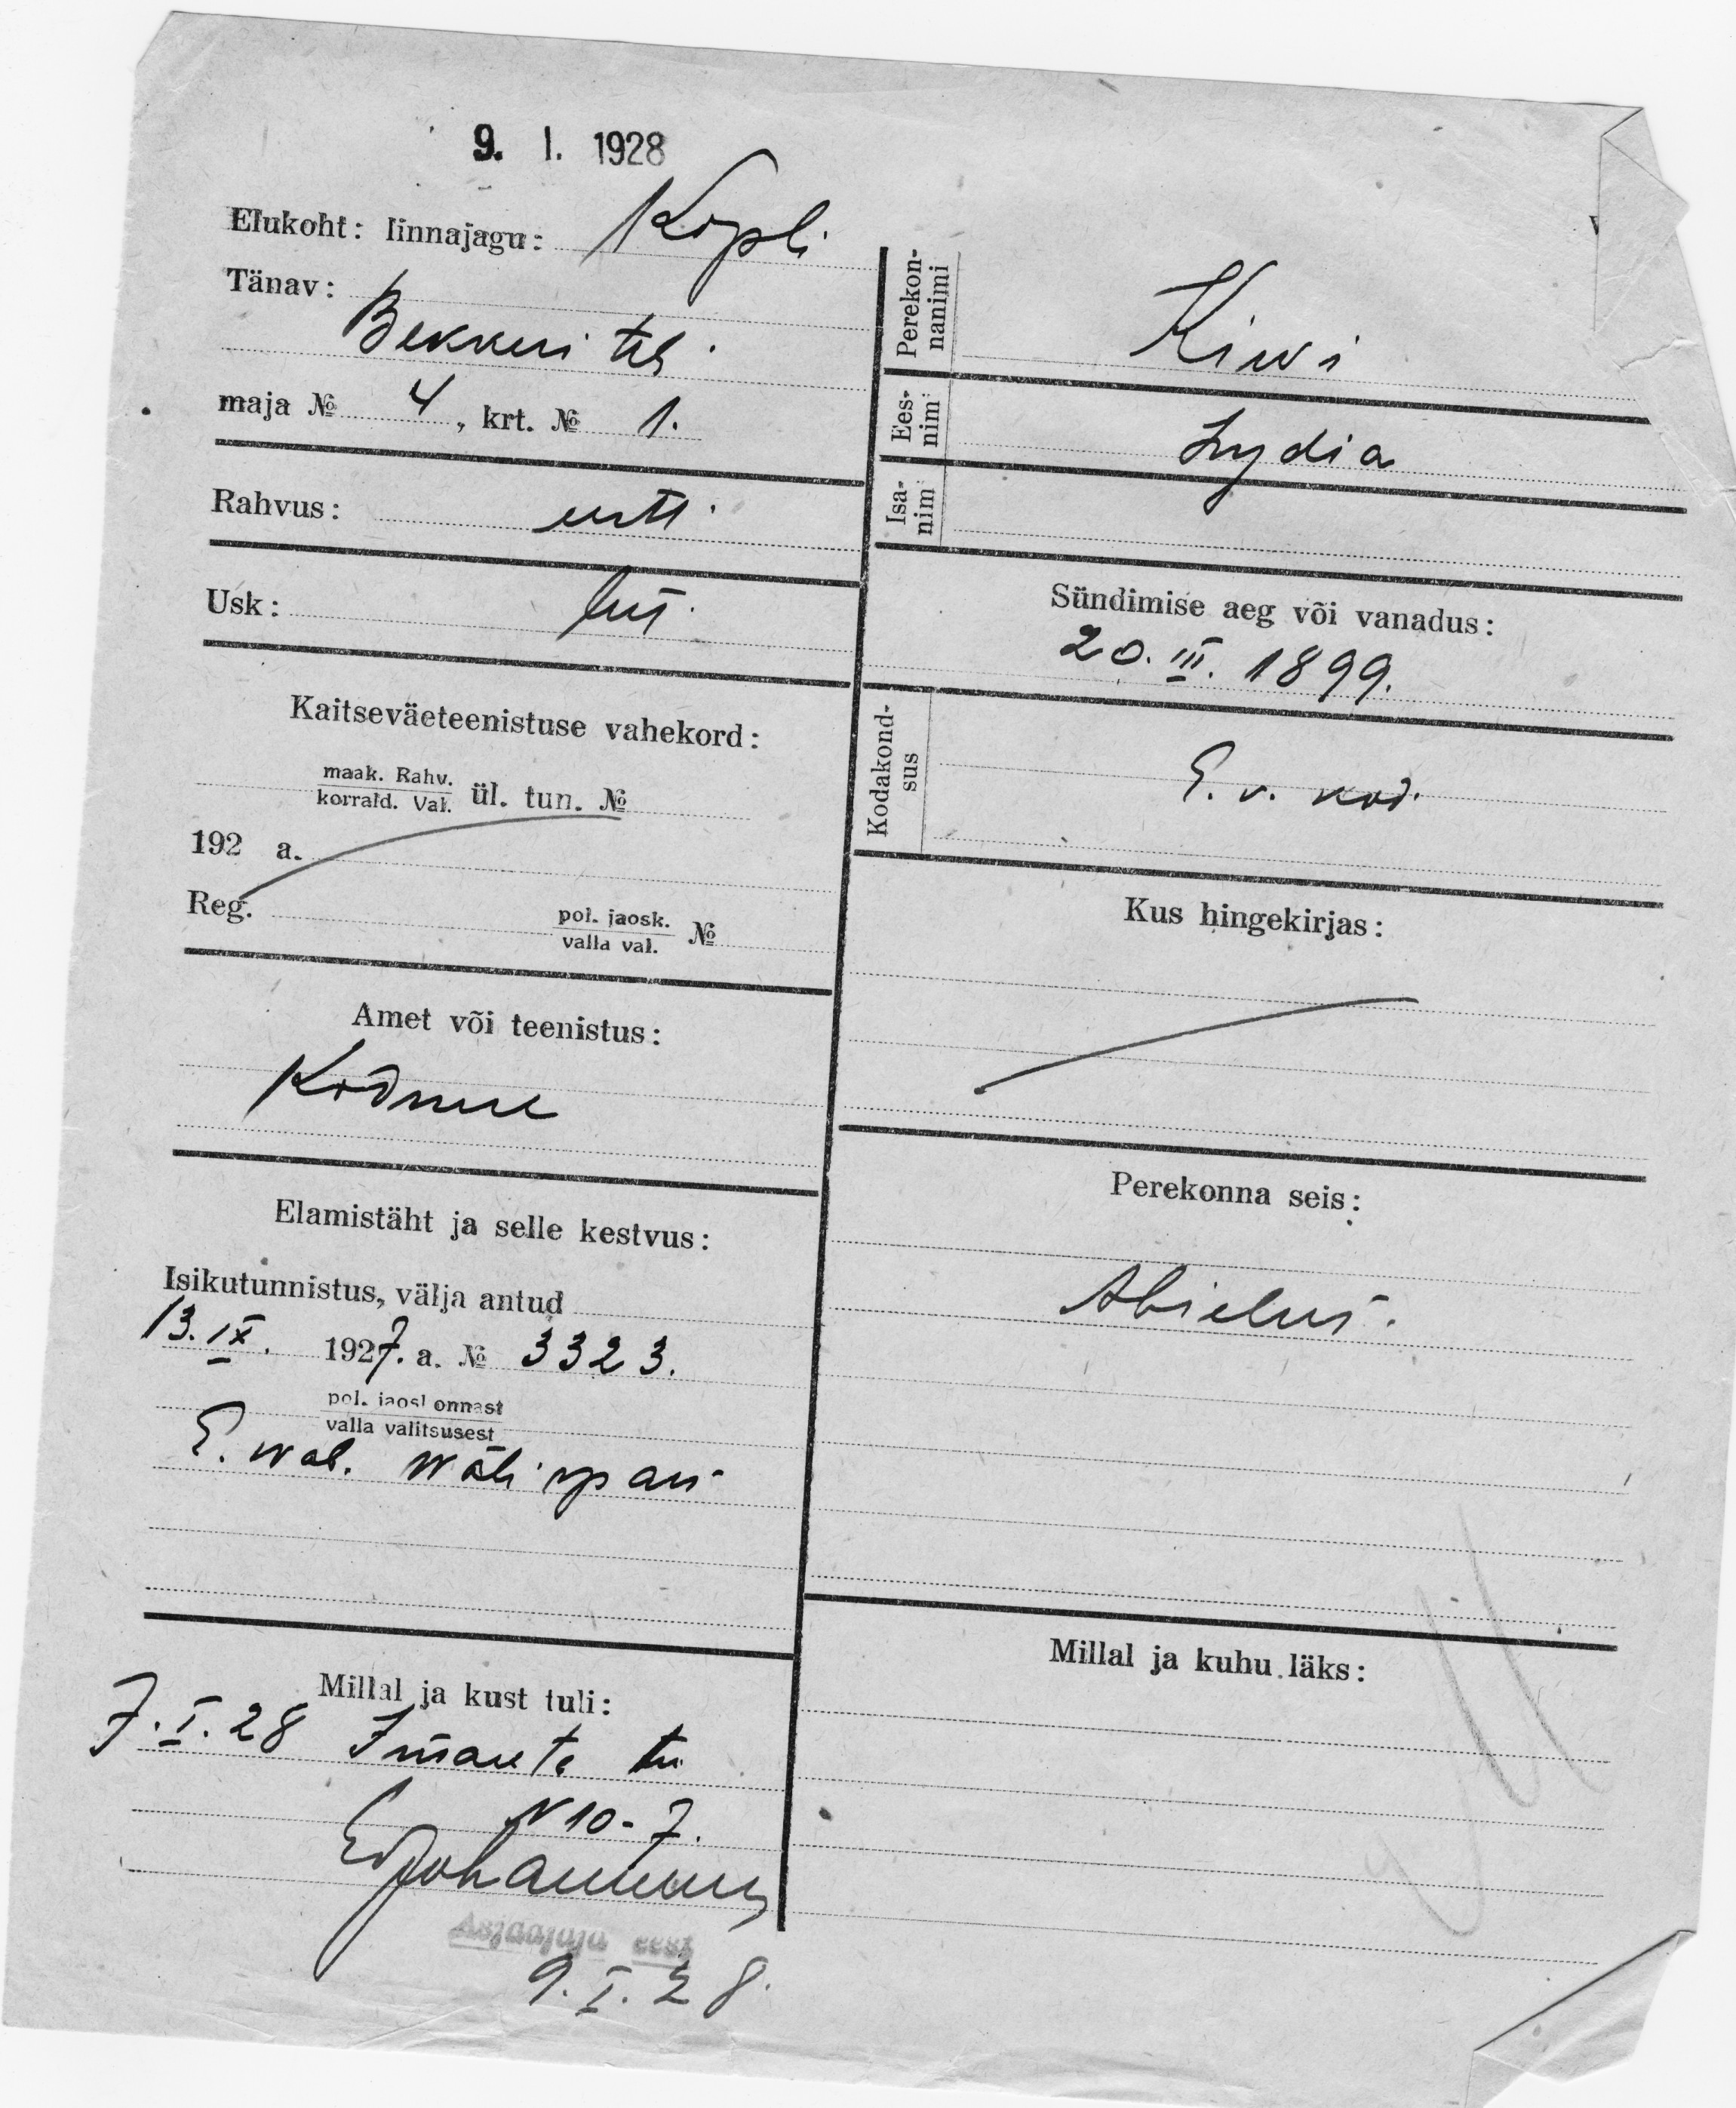 9. I. 1928
Elukoht: linnajagu: Kopli
Tänav:
Bekkeri teh.
maja № 4, krt. № 1.
Rahvus: eesti
Usk: lut.
Kaitseväeteenistuse vahekord:
maak. Rahv.
korrald. Val. ül. tun. №
192 a.
Reg. pol. jaosk.
valla val. №
Amet või teenistus:
Kodune
Elamistäht ja selle kestvus:
Isikutunnistus, välja antud
13. IX. 1927. a. № 3323.
pol. jaoskonnast
valla valitsusest
E. wab. wälispass
Millal ja kust tuli:
7. I. 28 Imanta tn
N 10-7.
Asjaajaja eest
9. I. 28.
Perekonnanimi
Kiwi
Eesnimi
Lydia
Isanimi
Sündimise aeg või vanadus:
20. III. 1899.
Kodakondsus
E. v. kod.
Kus hingekirjas:
Perekonna seis:
Abielus.
Millal ja kuhu läks: